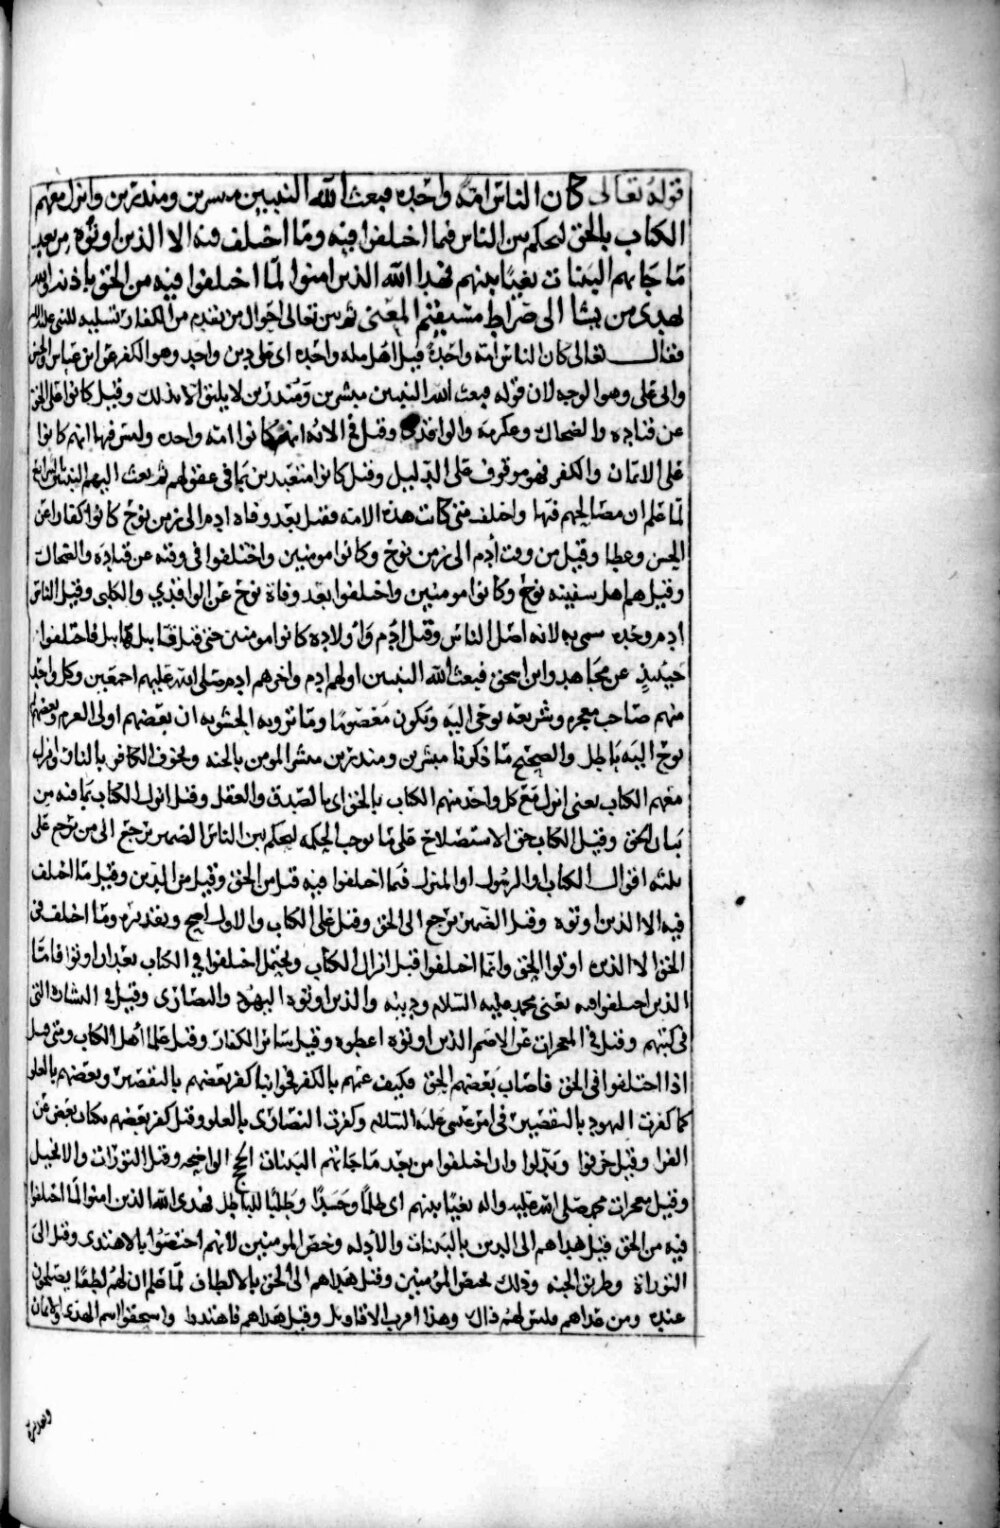 قوله تعالى كان الناس امة واحدة فبعث الله النبيين مبشرين ومنذرين وانزل معهم
الكتاب بالحق ليحكم بين الناس فيما اختلفوا فيه وما اختلف فيه الا الذين اوتوه من بعد
ما جاتهم البينات بغيا بينهم فهدا الله الذين امنوا لما اختلفوا فيه من الحق باذنه والله
يهدى من يشا الى صراط مستقيم المعنى ثم بين تعالى احوال من تقدم من الكفار تسلية للنبى عليه السلام
فقال تعالى كان الناس امة واحدة قيل اهل ملة واحدة اى على دين واحد وهو الكفر عن ابن عباس والحسن
وابى على وهو الوجه لان قوله فبعث الله النبيين مبشرين ومنذرين لا يليق الا بذلك وقيل كانوا على الحق
عن قتادة والضحاك وعكرمة والواقدى وقيل فى الاية انهم كانوا امة واحدة وليس فيها انهم كانوا
على الايمان والكفر فهو موقوف على الدليل وقيل كانوا متعبدين بما فى عقولهم ثم بعث اليهم النبيين بالشرايع
لما علم ان مصالحهم فيها واختلف متى كانت هذه الامة فقيل بعد وفاة ادم الى زمن نوح كانوا كفارا عن
الحسن وعطا وقيل من وقت ادم الى زمن نوح وكانوا مومنين واختلفوا فى وقته عن قتادة والضحاك
وقيل هم اهل سفينة نوح وكانوا مومنين واختلفوا بعد وفاة نوح عن الواقدي والكلبى وقيل الناس
ادم وحده سمى به لانه اصل الناس وقيل ادم واولاده كانوا مومنين حتى قتل قابيل هابيل فاختلفوا
حينيذ عن مجاهد وابن اسحق فبعث الله النبيين اولهم ادم واخرهم ادم صلى الله عليهم اجمعين وكل واحد
منهم صاحب معجزة وشريعة يوحى اليه ويكون معصوما وما ترويه الحشوية ان بعضهم اولى العزم وبعضهم
يوحى اليه باطل والصحيح ما ذكرنا مبشرين ومنذرين مبشر المومن بالجنة ويخوف الكافر بالنار وانزل
معهم الكتاب يعنى انزل مع كل واحد منهم الكتاب بالحق اى بالصدق والعقل وقيل انزل الكتاب بما فيه من
بيان الحق وقيل الكتاب حق الاستصلاح على ما توجب الحكمة ليحكم بين الناس الضمير يرجع الى من يرجع على
ثلثة اقوال الكتاب او الرسول او المنزل فيما اختلفوا فيه قيل من الحق وقيل من الدين وقيل ما اختلف
فيه الا الذين اوتوه وقيل الضمير يرجع الى الحق وقيل على الكتاب والاول اصح وتقديره وما اختلف فى
الحق الا الذين اوتوا الحق وانما اختلفوا قبل انزال الكتاب ويحتمل اختلفوا في الكتاب بعد ان اوتوا فاما
الذين اختلفوا فيه يعنى محمد عليه السلام ودينه والذين اوتوه اليهود والنصارى وقيل فى البشارة التى
فى كتبهم وقيل فى المعجزات عن الاصم الذين اوتوه اعطوه وقيل ساير الكفار وقيل علما اهل الكتاب ومتى قيل
اذا اختلفوا فى الحق فاصاب بعضهم الحق فكيف عمهم بالكفر فجوابنا كفر بعضهم بالتقصير وبعضهم بالغلو
كما كفرت اليهود بالتقصير فى امر عيسى عليه السلام وكفرت النصارى بالغلو وقيل كفر بعضهم بكتاب بعض عن
الفرا وقيل حرفوا وبدلوا وان اختلفوا من بعد ما جاتهم البينات الحجج الواضحة وقيل التورات والانجيل
وقيل معجزات محمد صلى الله عليه واله بغيا بينهم اى ظلما وحسدا وطلبا للباطل فهدى الله الذين امنوا لما اختلفوا
فيه من الحق قيل هداهم الى الدين بالبينات والادلة وخص المومنين لانهم اختصوا بالاهتدى وقيل الى
التوراة وطريق الجنة وذلك يخص المؤمنين وقيل هداهم الى الحق بالالطاف لما علم ان لهم لطفا يصلحون
عنده ومن عداهم فليس لهم ذلك وهذا اقرب الاقاويل وقيل هداهم فاهتدوا واستحقوا اسم الهدى والايمان